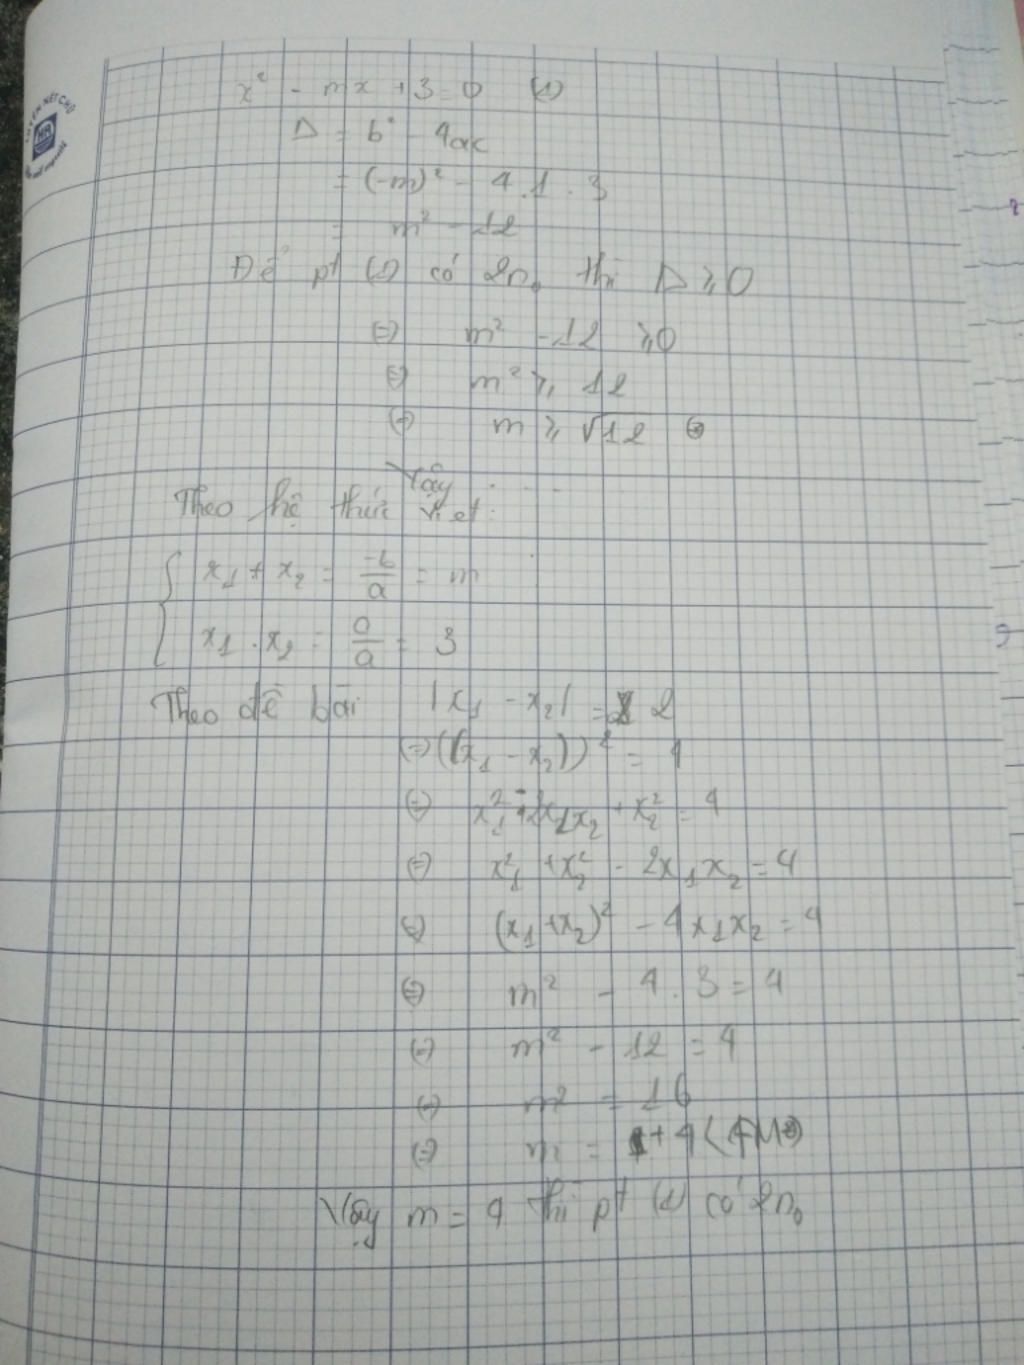 x² - mx + 3 = 0 (1)
Δ = b² - 4ac
= (-m)² - 4.1.3
= m² - 12
Để pt (1) có 2n₀ thì Δ ≥ 0
⇔ m² - 12 ≥ 0
⇔ m² ≥ 12
⇔ m ≥ √12
Vậy ....
Theo hệ thức viet:
{ x₁ + x₂ = -b/a = m
x₁ . x₂ = c/a = 3
Theo đề bài |x₁ - x₂| = 2
⇔ ((x₁ - x₂))² = 4
⇔ x₁² - 2x₁x₂ + x₂² = 4
⇔ x₁² + x₂² - 2x₁x₂ = 4
⇔ (x₁ + x₂)² - 4x₁x₂ = 4
⇔ m² - 4.3 = 4
⇔ m² - 12 = 4
⇔ m² = 16
⇔ m = + 4 (TMĐ)
Vậy m = 4 thì pt (1) có 2n₀